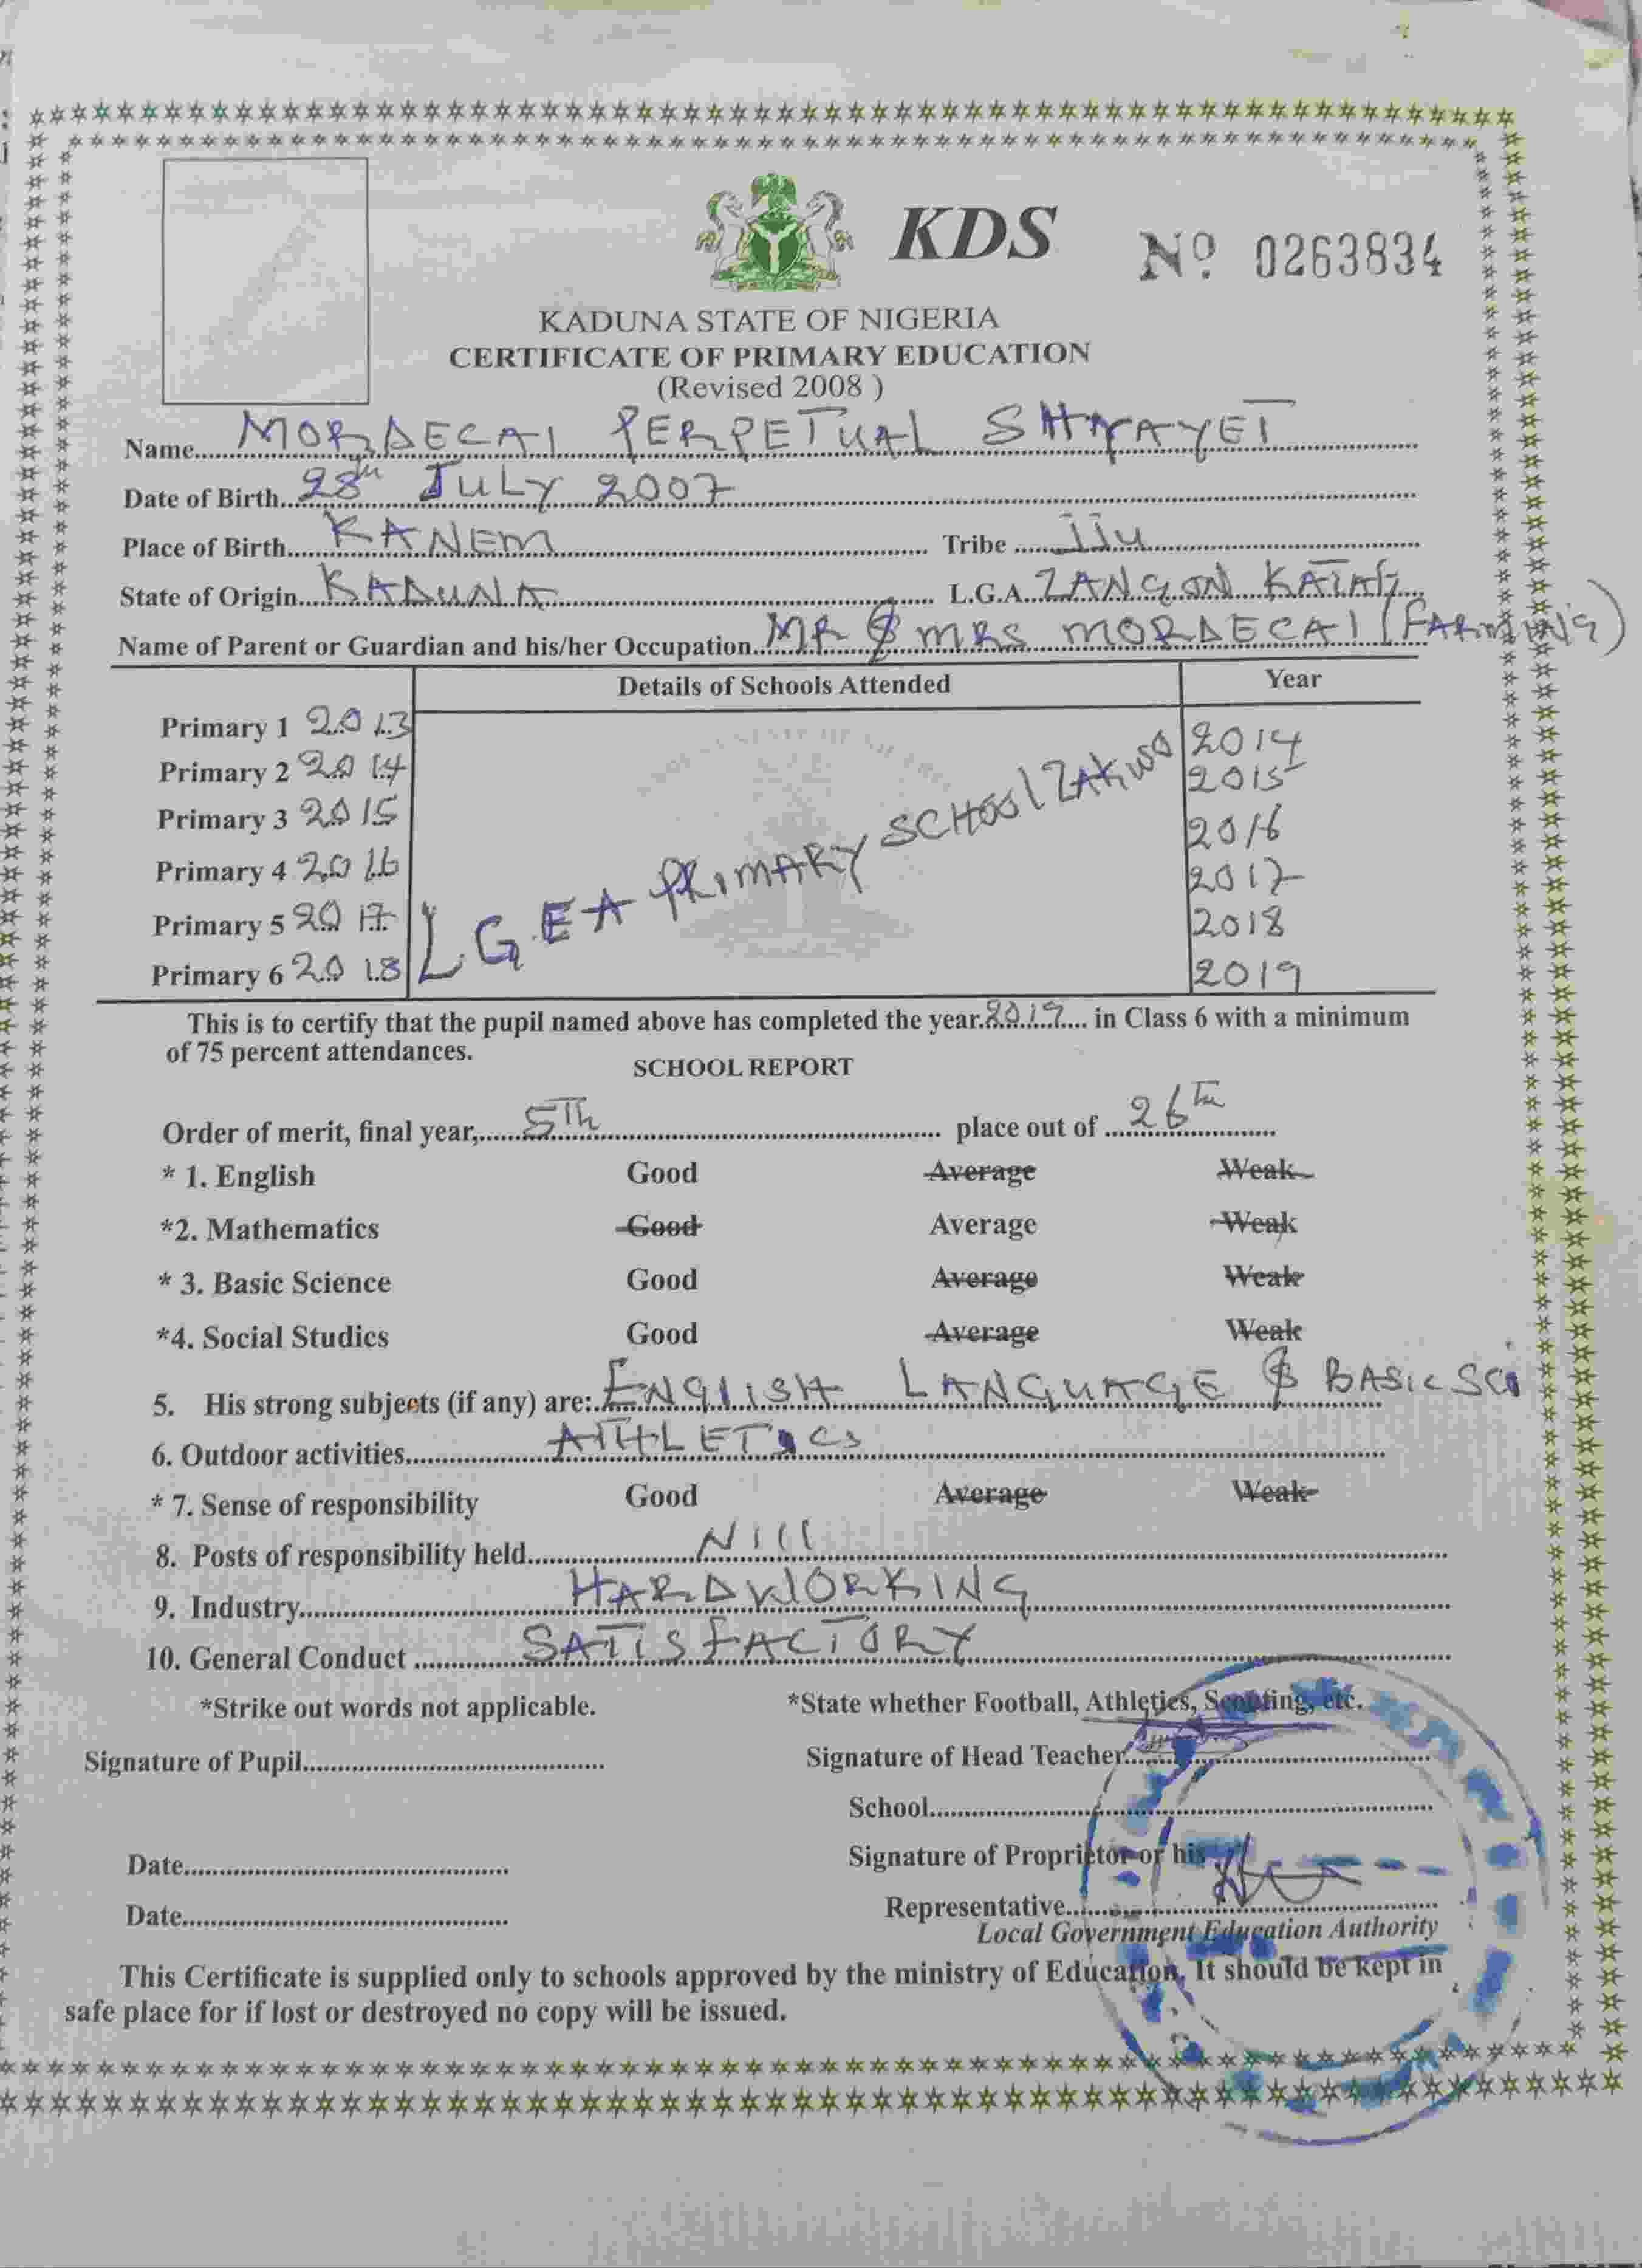 KDS
Nº 0263834
KADUNA STATE OF NIGERIA
CERTIFICATE OF PRIMARY EDUCATION
(Revised 2008 )
Name MORDECAI PERPETUAL SHYAYET
Date of Birth 28th JULY 2007
Place of Birth KANEM Tribe JJU
State of Origin KADUNA L.G.A. ZANGON KATAF
Name of Parent or Guardian and his/her Occupation MR & MRS MORDECAI (FARMING)
Details of Schools Attended Year
Primary 1 2013 2014
Primary 2 2014 2015
Primary 3 2015 2016
Primary 4 2016 2017
Primary 5 2017 2018
Primary 6 2018 2019
L.G.E.A PRIMARY SCHOOL ZAKWO
This is to certify that the pupil named above has completed the year 2019 in Class 6 with a minimum
of 75 percent attendances.
SCHOOL REPORT
Order of merit, final year, 5Th place out of 26Th
* 1. English Good Average Weak
*2. Mathematics Good Average Weak
* 3. Basic Science Good Average Weak
*4. Social Studies Good Average Weak
5. His strong subjects (if any) are: ENGLISH LANGUAGE & BASIC SCI
6. Outdoor activities ATHLETICS
* 7. Sense of responsibility Good Average Weak
8. Posts of responsibility held Nill
9. Industry HARDWORKING
10. General Conduct SATISFACTORY
*Strike out words not applicable. *State whether Football, Athletics, Scouting, etc.
Signature of Pupil Signature of Head Teacher
School
Date Signature of Proprietor or his
Date Representative
Local Government Education Authority
This Certificate is supplied only to schools approved by the ministry of Education, It should be kept in
safe place for if lost or destroyed no copy will be issued.